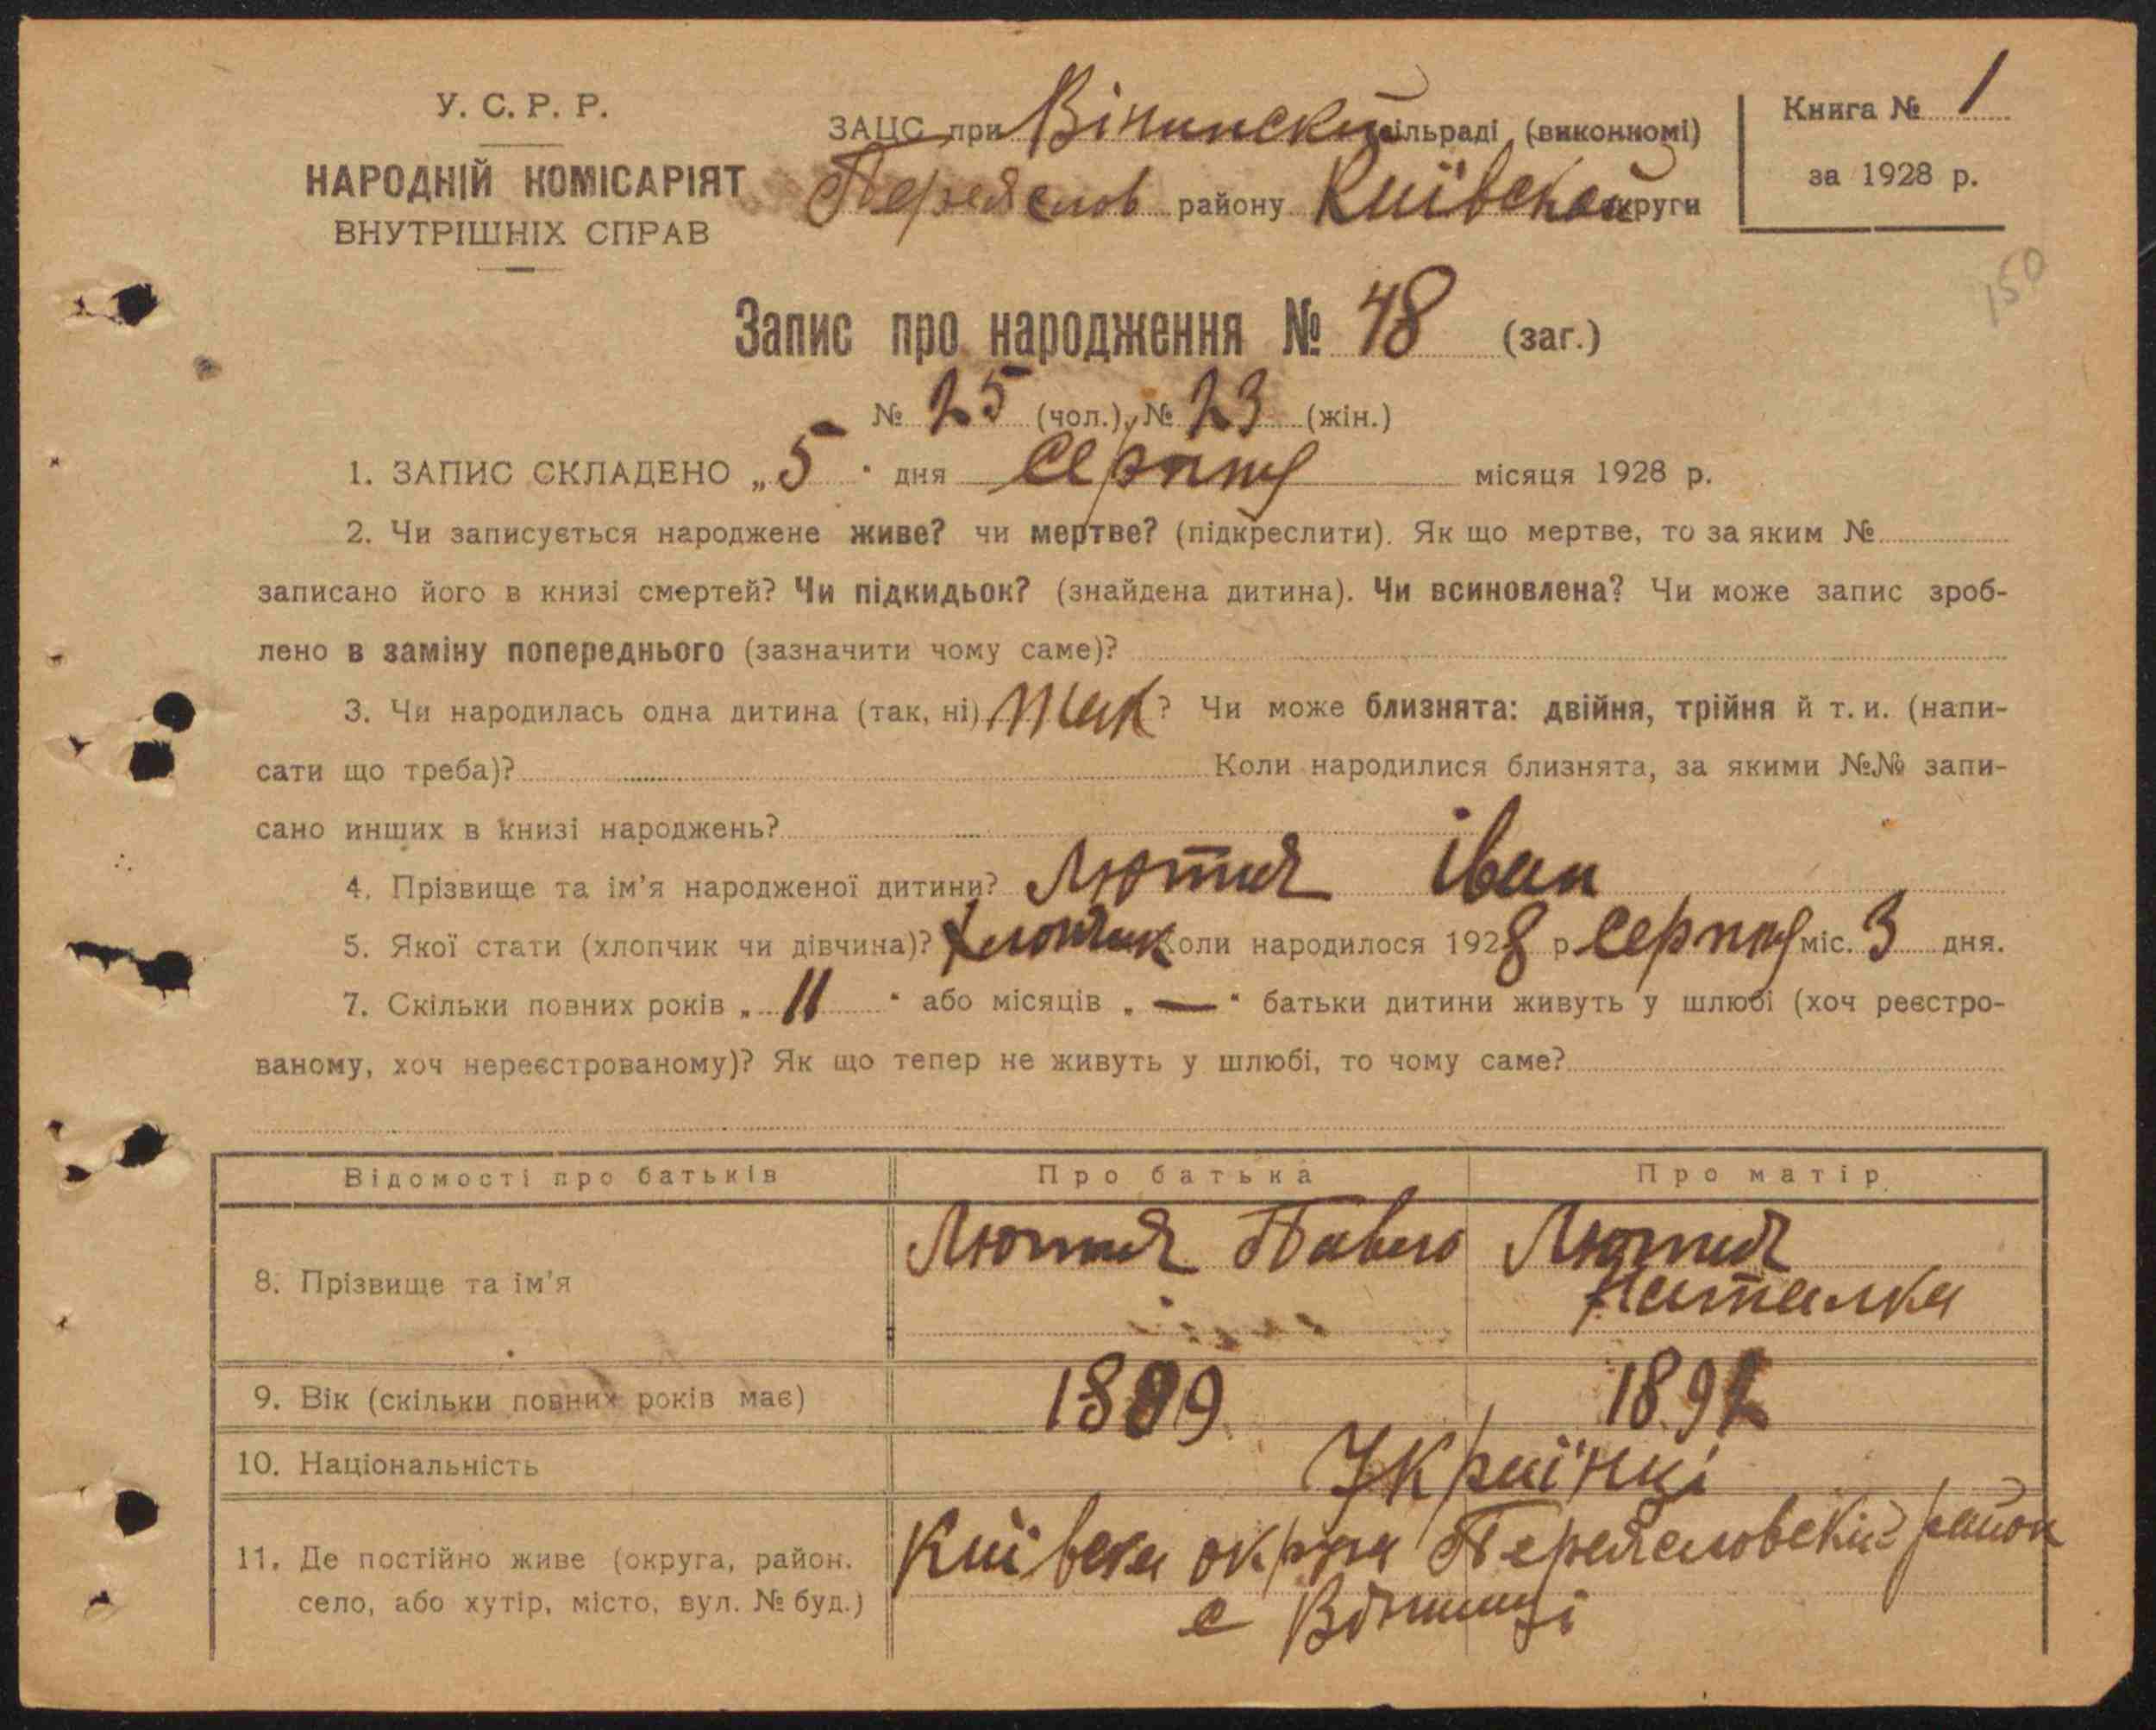 У. С. Р. Р.
НАРОДНІЙ КОМІСАРІЯТ
ВНУТРІШНІХ СПРАВ
ЗАЦС при Вінинский сільраді (виконкомі)
Переяслов району Київской округи
Книга № 1
за 1928 р.
150
Запис про народження № 48 (заг.)
№ 25 (чол.), № 23 (жін.)
1. ЗАПИС СКЛАДЕНО „5" дня серпня місяця 1928 р.
2. Чи записується народжене живе? чи мертве? (підкреслити). Як що мертве, то за яким №
записано його в книзі смертей? Чи підкидьок? (знайдена дитина). Чи всиновлена? Чи може запис зроб-
лено в заміну попереднього (зазначити чому саме)?
3. Чи народилась одна дитина (так, ні) так? Чи може близнята: двійня, трійня й т. и. (напи-
сати що треба)? Коли народилися близнята, за якими №№ запи-
сано инших в книзі народжень?
4. Прізвище та ім'я народженої дитини? Лютия Іван
5. Якої стати (хлопчик чи дівчина)? Хлопчик Коли народилося 1928 р. серпня міс. 3 дня.
7. Скільки повних років „11" або місяців „—" батьки дитини живуть у шлюбі (хоч реєстро-
ваному, хоч нереєстрованому)? Як що тепер не живуть у шлюбі, то чому саме?
Відомості про батьків Про батька Про матір
8. Прізвище та ім'я Лютия Павло Лютия
Наталка
9. Вік (скільки повних років має) 1889 1892
10. Національність Українці
11. Де постійно живе (округа, район, Київска округа Переясловский район
село, або хутір, місто, вул. № буд.) с Вінинці